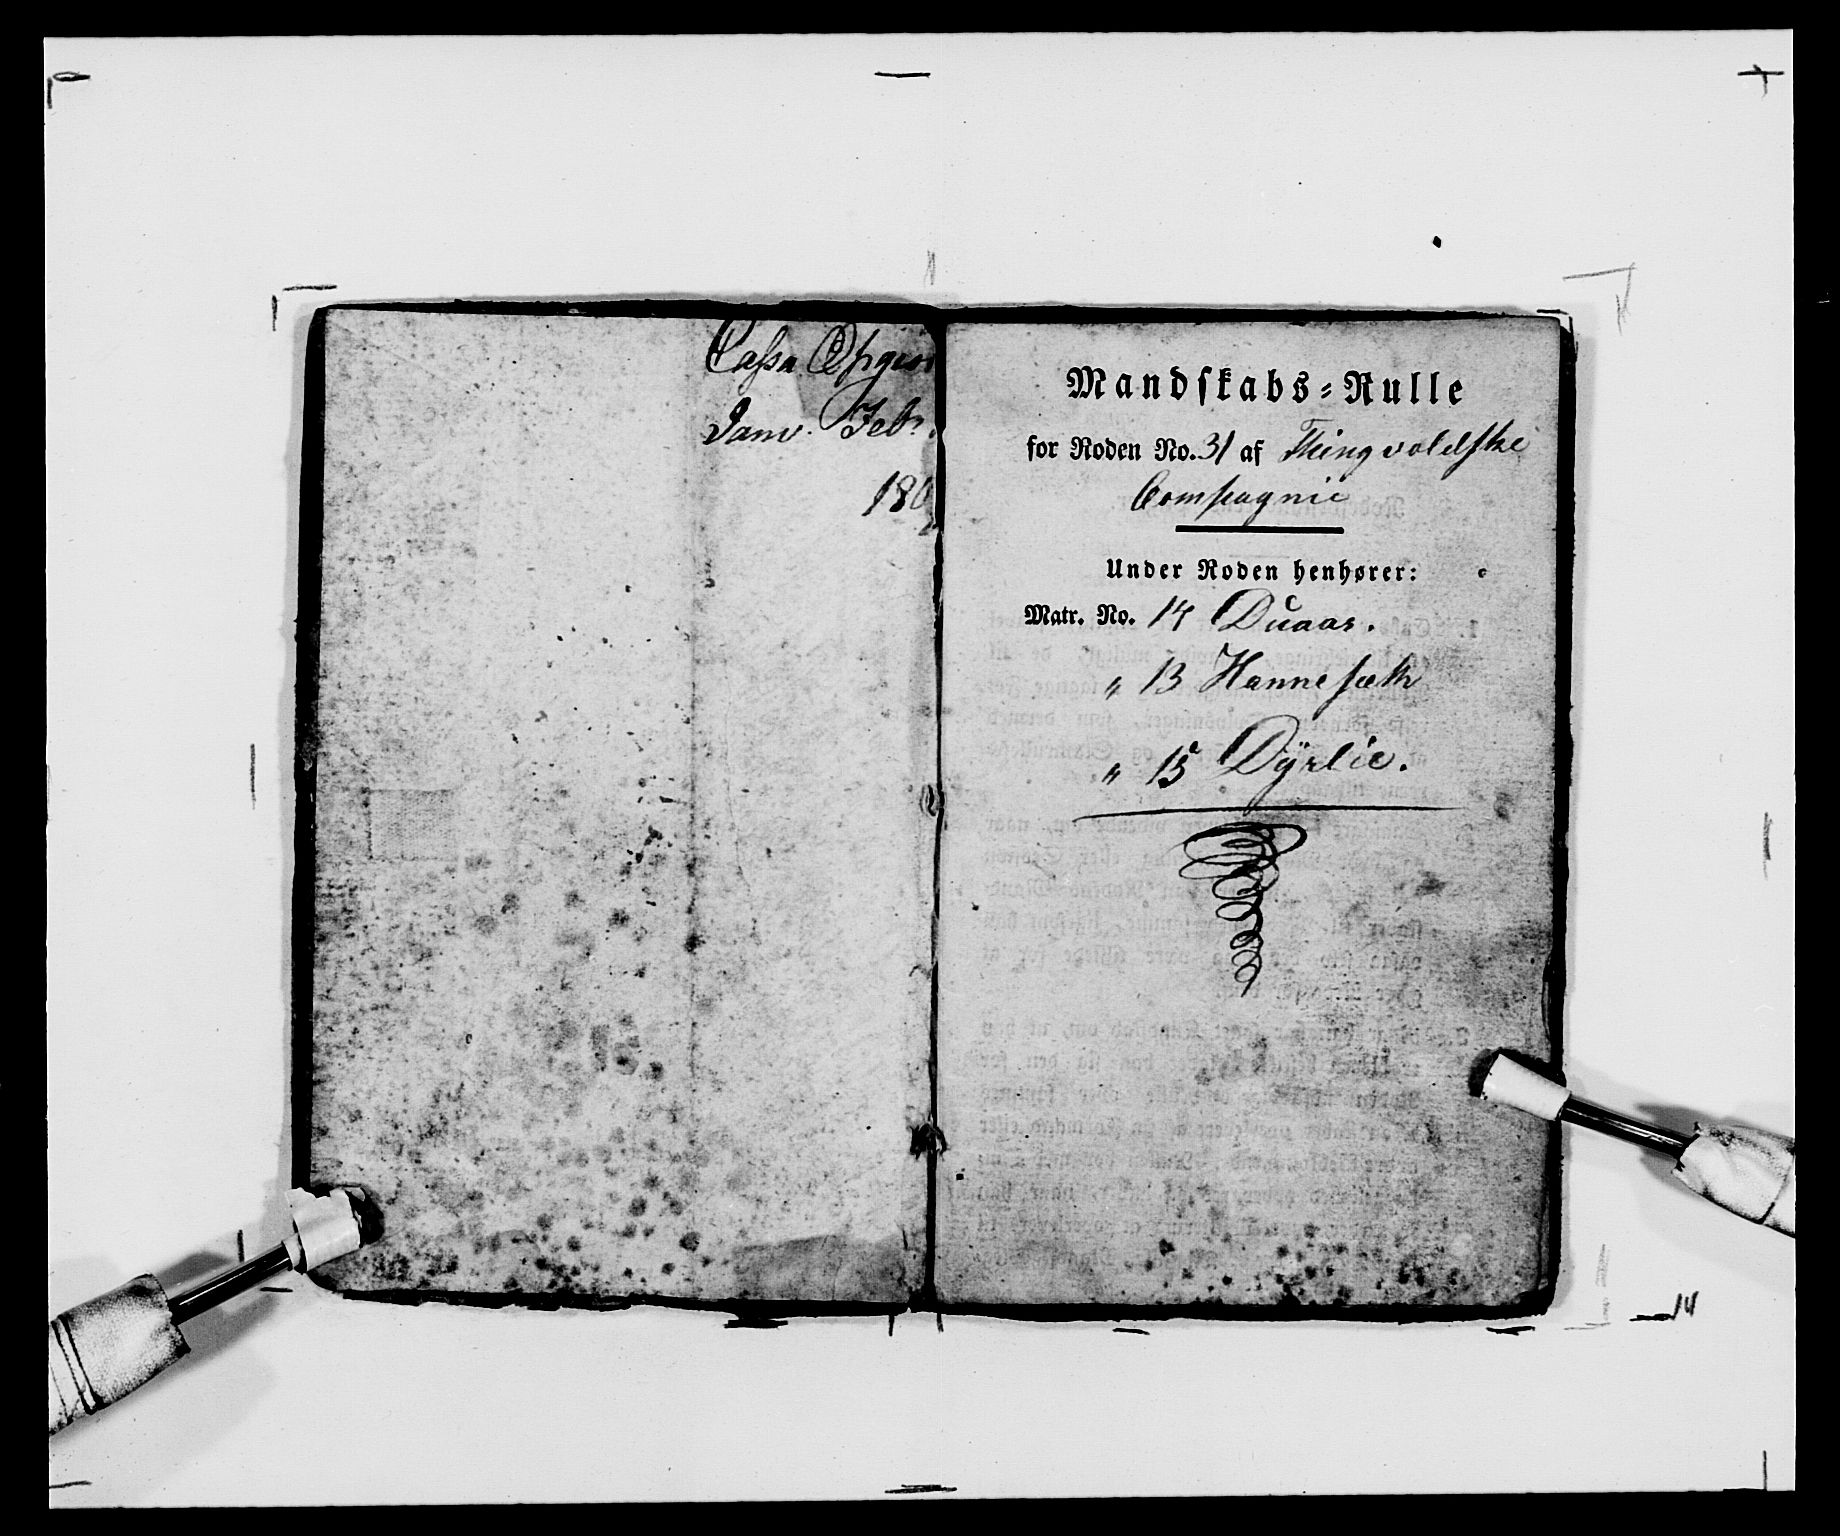 Cassa Opgiør
Janv. Febr.
180
Mandskabs-Rulle
for Roden No. 31 af Thingvoldske
Compagnie
Under Roden henhører:
Matr. No. 14 Duaas.
" 13 Hannesæth
" 15 Dÿrlie.
14